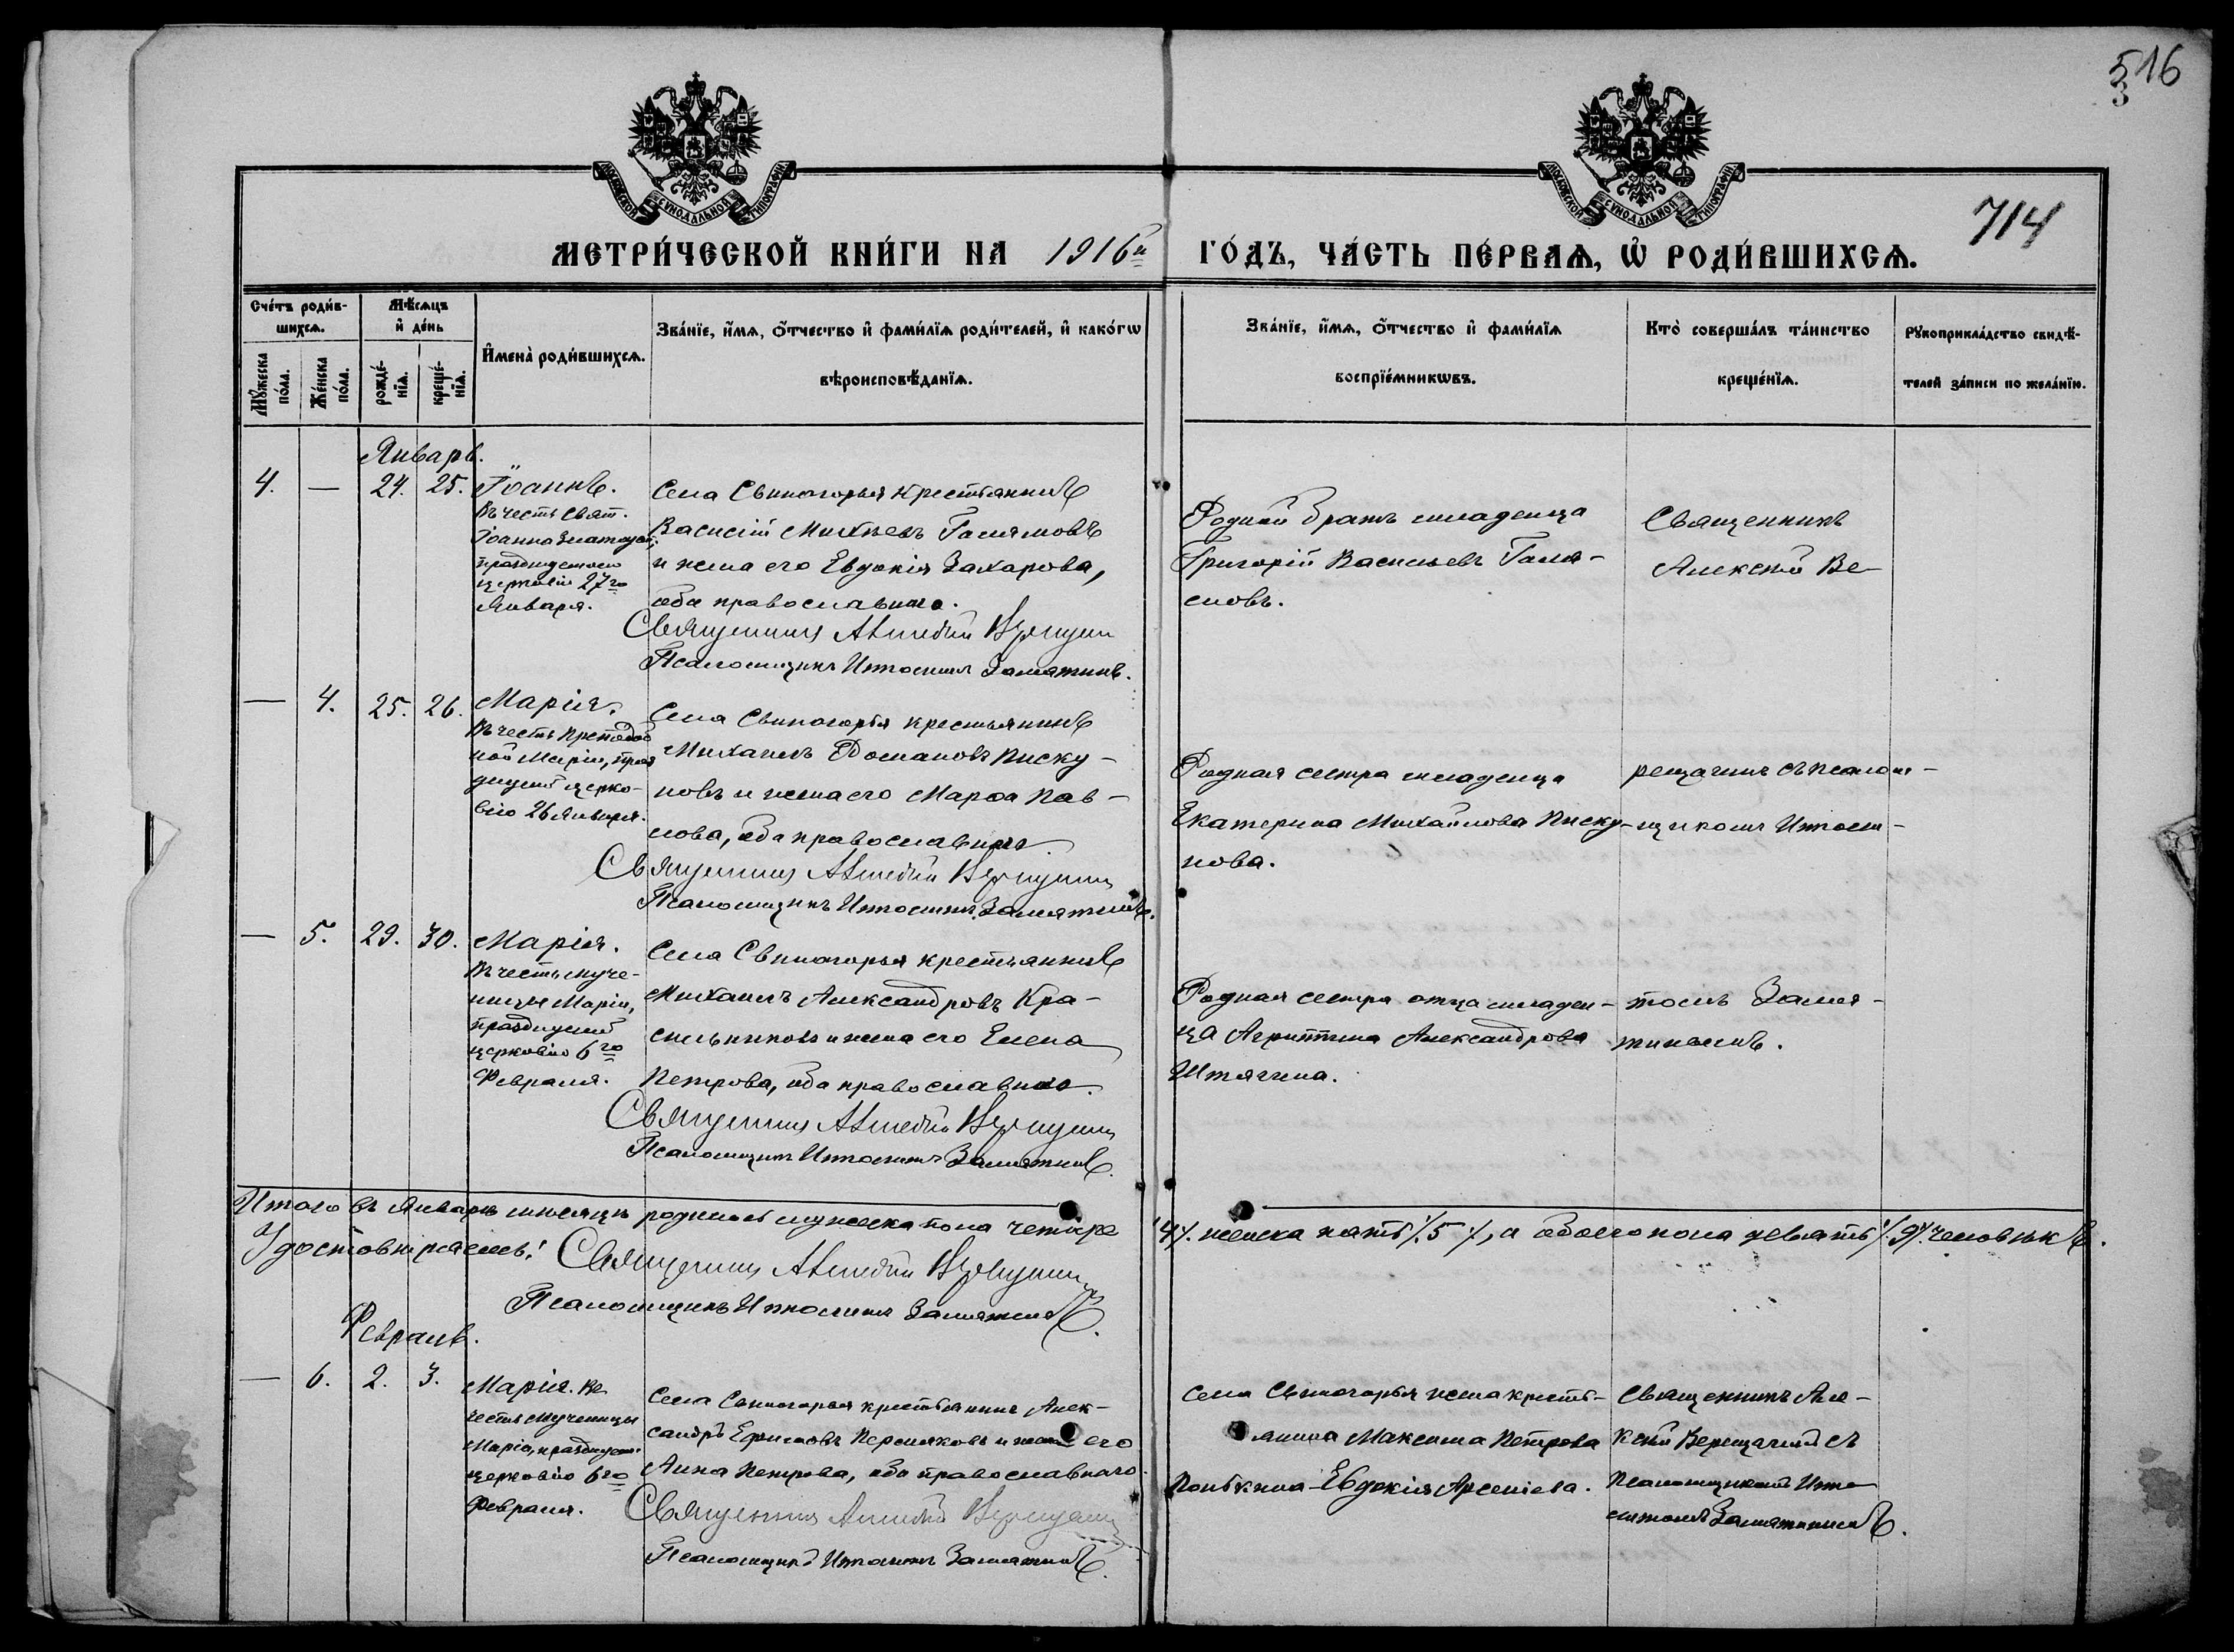 516
3
714
МОСКОВСКОЙ СѴНОДАЛЬНОЙ ТИПОГРАФІИ
МОСКОВСКОЙ СѴНОДАЛЬНОЙ ТИПОГРАФІИ
МЕТРИ́ЧЕСКОЙ КНИ́ГИ НА 1916й ГО́ДЪ, ЧА́СТЬ ПЕ́РВАѦ, Ѡ҆ РОДИ́ВШИХСѦ.
Сче́тъ роди́в-
шихсѧ.
Мѣ́сѧцъ
и҆ де́нь
Мꙋ́жеска
по́ла.
Же́нска
по́ла.
рожде́-
нїѧ.
креще́-
нїѧ.
И҆мена̀ роди́вшихсѧ.
Зва́нїе, и҆́мѧ, о҆́тчество и҆ фами́лїѧ роди́телей, и҆ како́гѡ
вѣроисповѣ́данїѧ.
Зва́нїе, и҆́мѧ, о҆́тчество и҆ фами́лїѧ
воспрїе́мникѡвъ.
Кто̀ соверша́лъ та́инство
креще́нїѧ.
Рꙋкоприкла́дство свидѣ́-
телей за́писи по жела́нїю.
Январь.
4. — 24. 25. Іоаннъ.
Въ честь Свят.
Іоанна Златоуст.
празднуемаго
церковію 27го
Января.
Села Свиногорья крестьянинъ
Василій Михѣевъ Галямовъ
и жена его Евдокія Захарова,
оба православнаго.
Священникъ Алексій Верещагин
Псаломщикъ Ипполитъ Замятинъ.
Родной братъ младенца
Григорій Васильевъ Галя-
мовъ.
Священникъ
Алексѣй Ве-
— 4. 25. 26. Марія.
Въ честь Преподоб
ной Маріи, праз
днуемой церко-
вію 26 Января.
Села Свиногорья крестьянинъ
Михаилъ Романовъ Писку-
новъ и жена его Марѳа Пав-
лова, оба православнаго.
Священникъ Алексій Верещагин
Псаломщикъ Ипполитъ Замятинъ.
Родная сестра младенца
Екатерина Михайлова Писку-
нова.
рещагинъ съ псалом-
щикомъ Ипполи-
— 5. 29. 30. Марія.
Въ честь муче-
ницы Маріи,
празднуемой
церковію 6го
Февраля.
Села Свиногорья крестьянинъ
Михаилъ Александровъ Кра-
сильниковъ и жена его Елена
Петрова, оба православнаго.
Священникъ Алексій Верещагин
Псаломщикъ Ипполитъ Замятинъ.
Родная сестра отца младен-
ца Агриппина Александрова
Штягина.
томъ Замя-
тинымъ.
Итого въ Январѣ мѣсяцѣ родилось мужеска пола четыре /4/. женска пять /.5./, а обоего пола девять /.9/. человѣкъ.
Удостовѣряемъ: Священникъ Алексій Верещагин
Псаломщикъ Ипполитъ Замятинъ.
Февраль.
— 6. 2. 3. Марія. Въ
честь Мученицы
Маріи, празднуем.
церковію 6го
Февраля.
Села Свиногорья крестьянинъ Алек-
сандръ Ефимовъ Пермяковъ и жена его
Анна Петрова, оба православнаго.
Священникъ Алексій Верещагин
Псаломщикъ Ипполитъ Замятинъ.
Села Свиногорья жена кресть-
янина Максима Петрова
Евдокія Арсеніева.
Священникъ Але-
ксѣй Верещагинъ съ
Псаломщикомъ Иппо-
литомъ Замятинымъ.